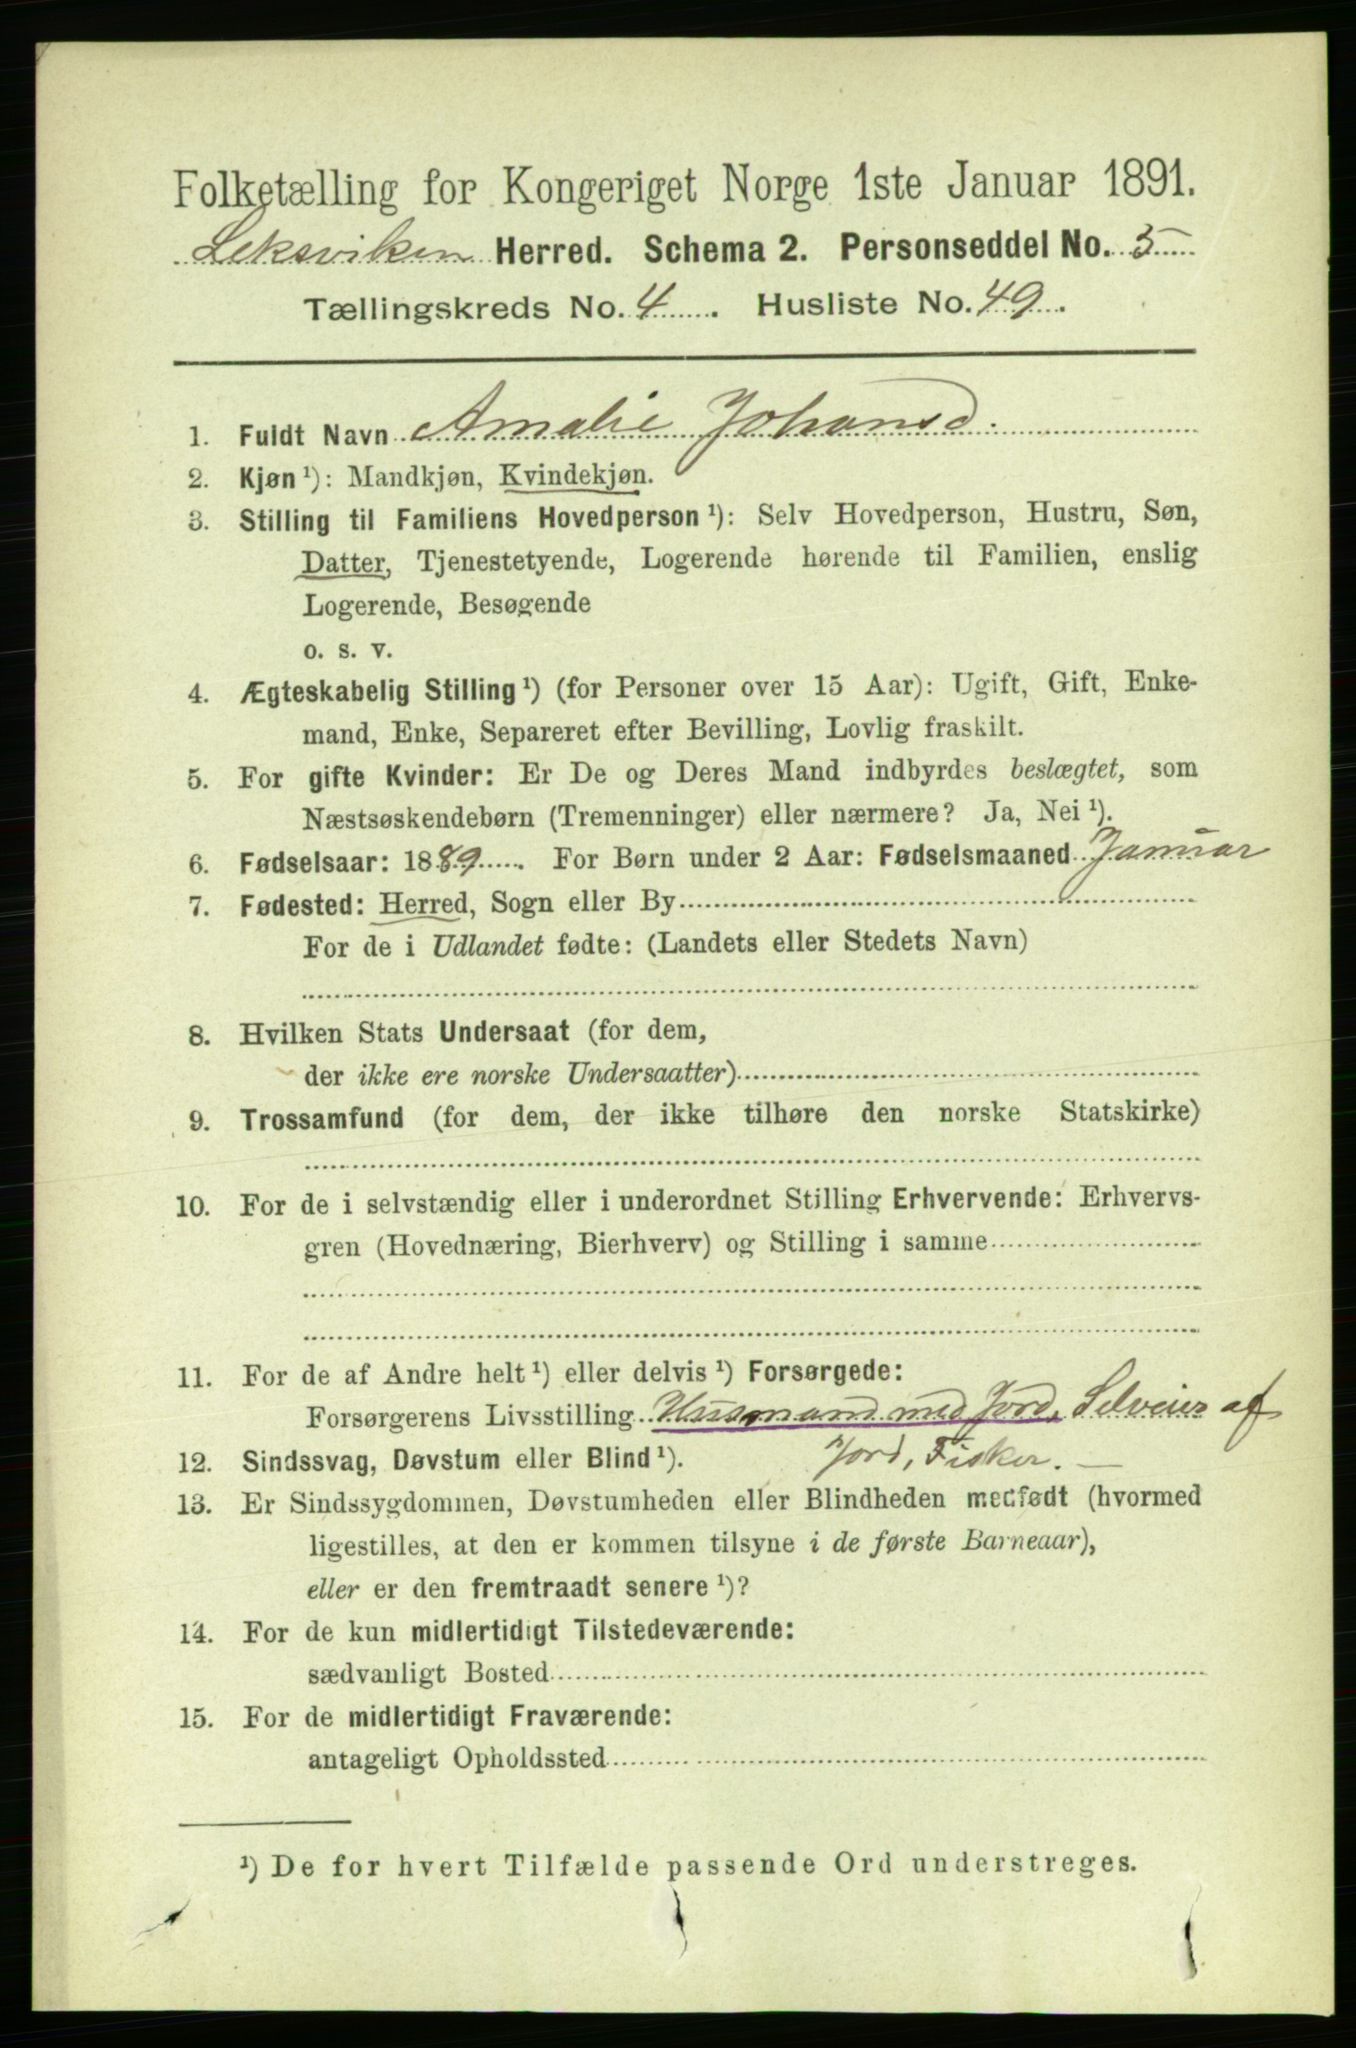 Folketælling for Kongeriget Norge 1ste Januar 1891.
Leksviken Herred. Schema 2. Personseddel No. 5
Tællingskreds No. 4. Husliste No. 49.
1. Fuldt Navn Amalie Johansd.
2. Kjøn ¹): Mandkjøn, Kvindekjøn.
3. Stilling til Familiens Hovedperson ¹): Selv Hovedperson, Hustru, Søn,
Datter, Tjenestetyende, Logerende hørende til Familien, enslig
Logerende, Besøgende
o. s. v.
4. Ægteskabelig Stilling ¹) (for Personer over 15 Aar): Ugift, Gift, Enke-
mand, Enke, Separeret efter Bevilling, Lovlig fraskilt.
5. For gifte Kvinder: Er De og Deres Mand indbyrdes beslægtet, som
Næstsøskendebørn (Tremenninger) eller nærmere? Ja, Nei ¹).
6. Fødselsaar: 1889. For Børn under 2 Aar: Fødselsmaaned Januar
7. Fødested: Herred, Sogn eller By
For de i Udlandet fødte: (Landets eller Stedets Navn)
8. Hvilken Stats Undersaat (for dem,
der ikke ere norske Undersaatter)
9. Trossamfund (for dem, der ikke tilhøre den norske Statskirke)
10. For de i selvstændig eller i underordnet Stilling Erhvervende: Erhvervs-
gren (Hovednæring, Bierhverv) og Stilling i samme
11. For de af Andre helt ¹) eller delvis ¹) Forsørgede:
Forsørgerens Livsstilling Husmand med Jord, Selveier af
12. Sindssvag, Døvstum eller Blind ¹). Jord, Fisker. —
13. Er Sindssygdommen, Døvstumheden eller Blindheden medfødt (hvormed
ligestilles, at den er kommen tilsyne i de første Barneaar),
eller er den fremtraadt senere ¹)?
14. For de kun midlertidigt Tilstedeværende:
sædvanligt Bosted
15. For de midlertidigt Fraværende:
antageligt Opholdssted
¹) De for hvert Tilfælde passende Ord understreges.